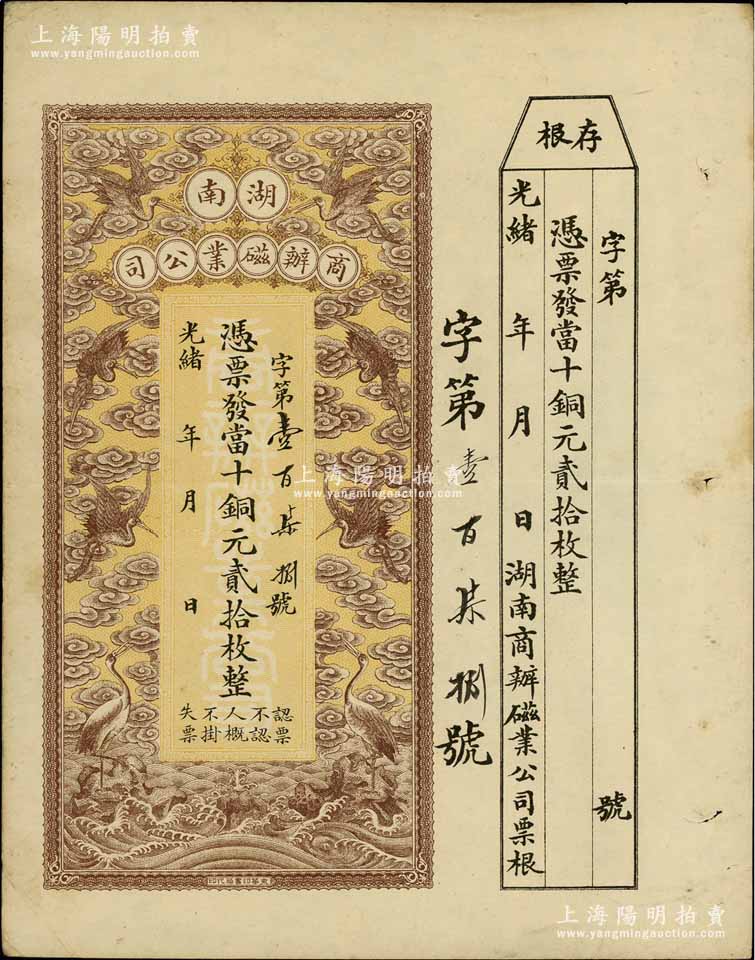 上海陽明拍賣
www.yangmingauction.com
湖南
商辦磁業公司
字第壹百柒捌號
憑票發當十銅元貳拾枚整
光緒 年 月 日
認票不認人概不掛失票
字第壹百柒捌號
存根
字第 號
憑票發當十銅元貳拾枚整
光緒 年 月 日湖南商辦磁業公司票根
上海陽明拍賣
www.yangmingauction.com
上海陽明拍賣
www.yangmingauction.com